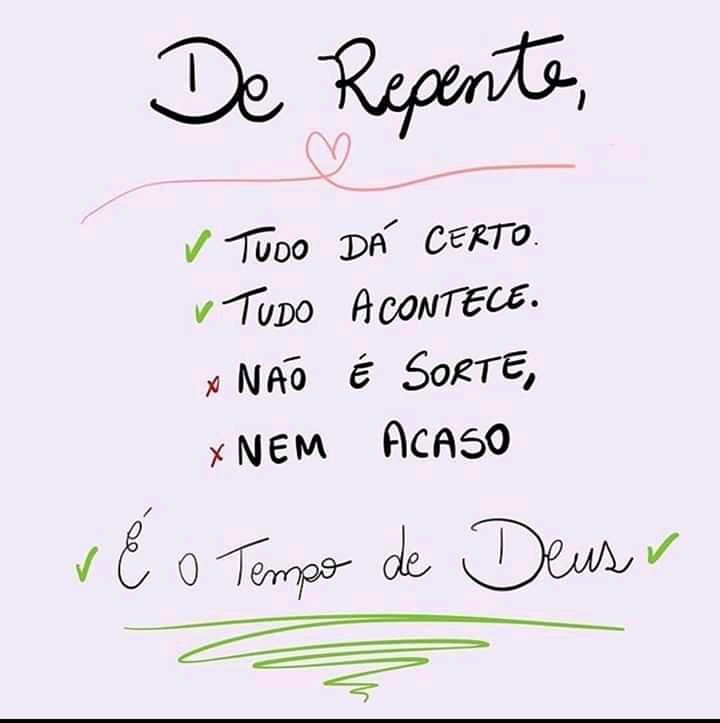 De Repente,
✓ TUDO DÁ CERTO.
✓ TUDO ACONTECE.
x NÃO É SORTE,
x NEM ACASO
✓ É o Tempo de Deus ✓